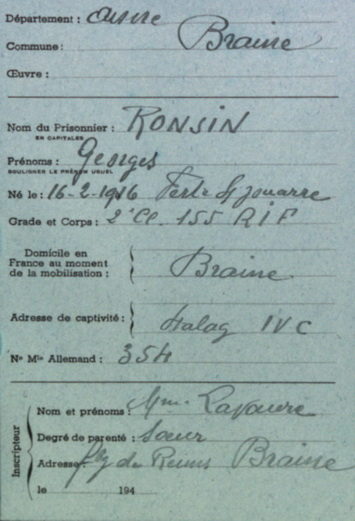 Département : Aisne
Commune : Braine
Œuvre :
Nom du Prisonnier : RONSIN
EN CAPITALES
Prénoms : Georges
SOULIGNER LE PRÉNOM USUEL
Né le : 16-2-1916 Ferté S/ Jouarre
Grade et Corps : 2e Cl. 155 R I F
Domicile en
France au moment
de la mobilisation : Braine
Adresse de captivité : Stalag IV C
N° Mle Allemand : 354
Inscripteur
Nom et prénoms : Mme Lavaure
Degré de parenté : Sœur
Adresse : fg de Reims Braine
le 194